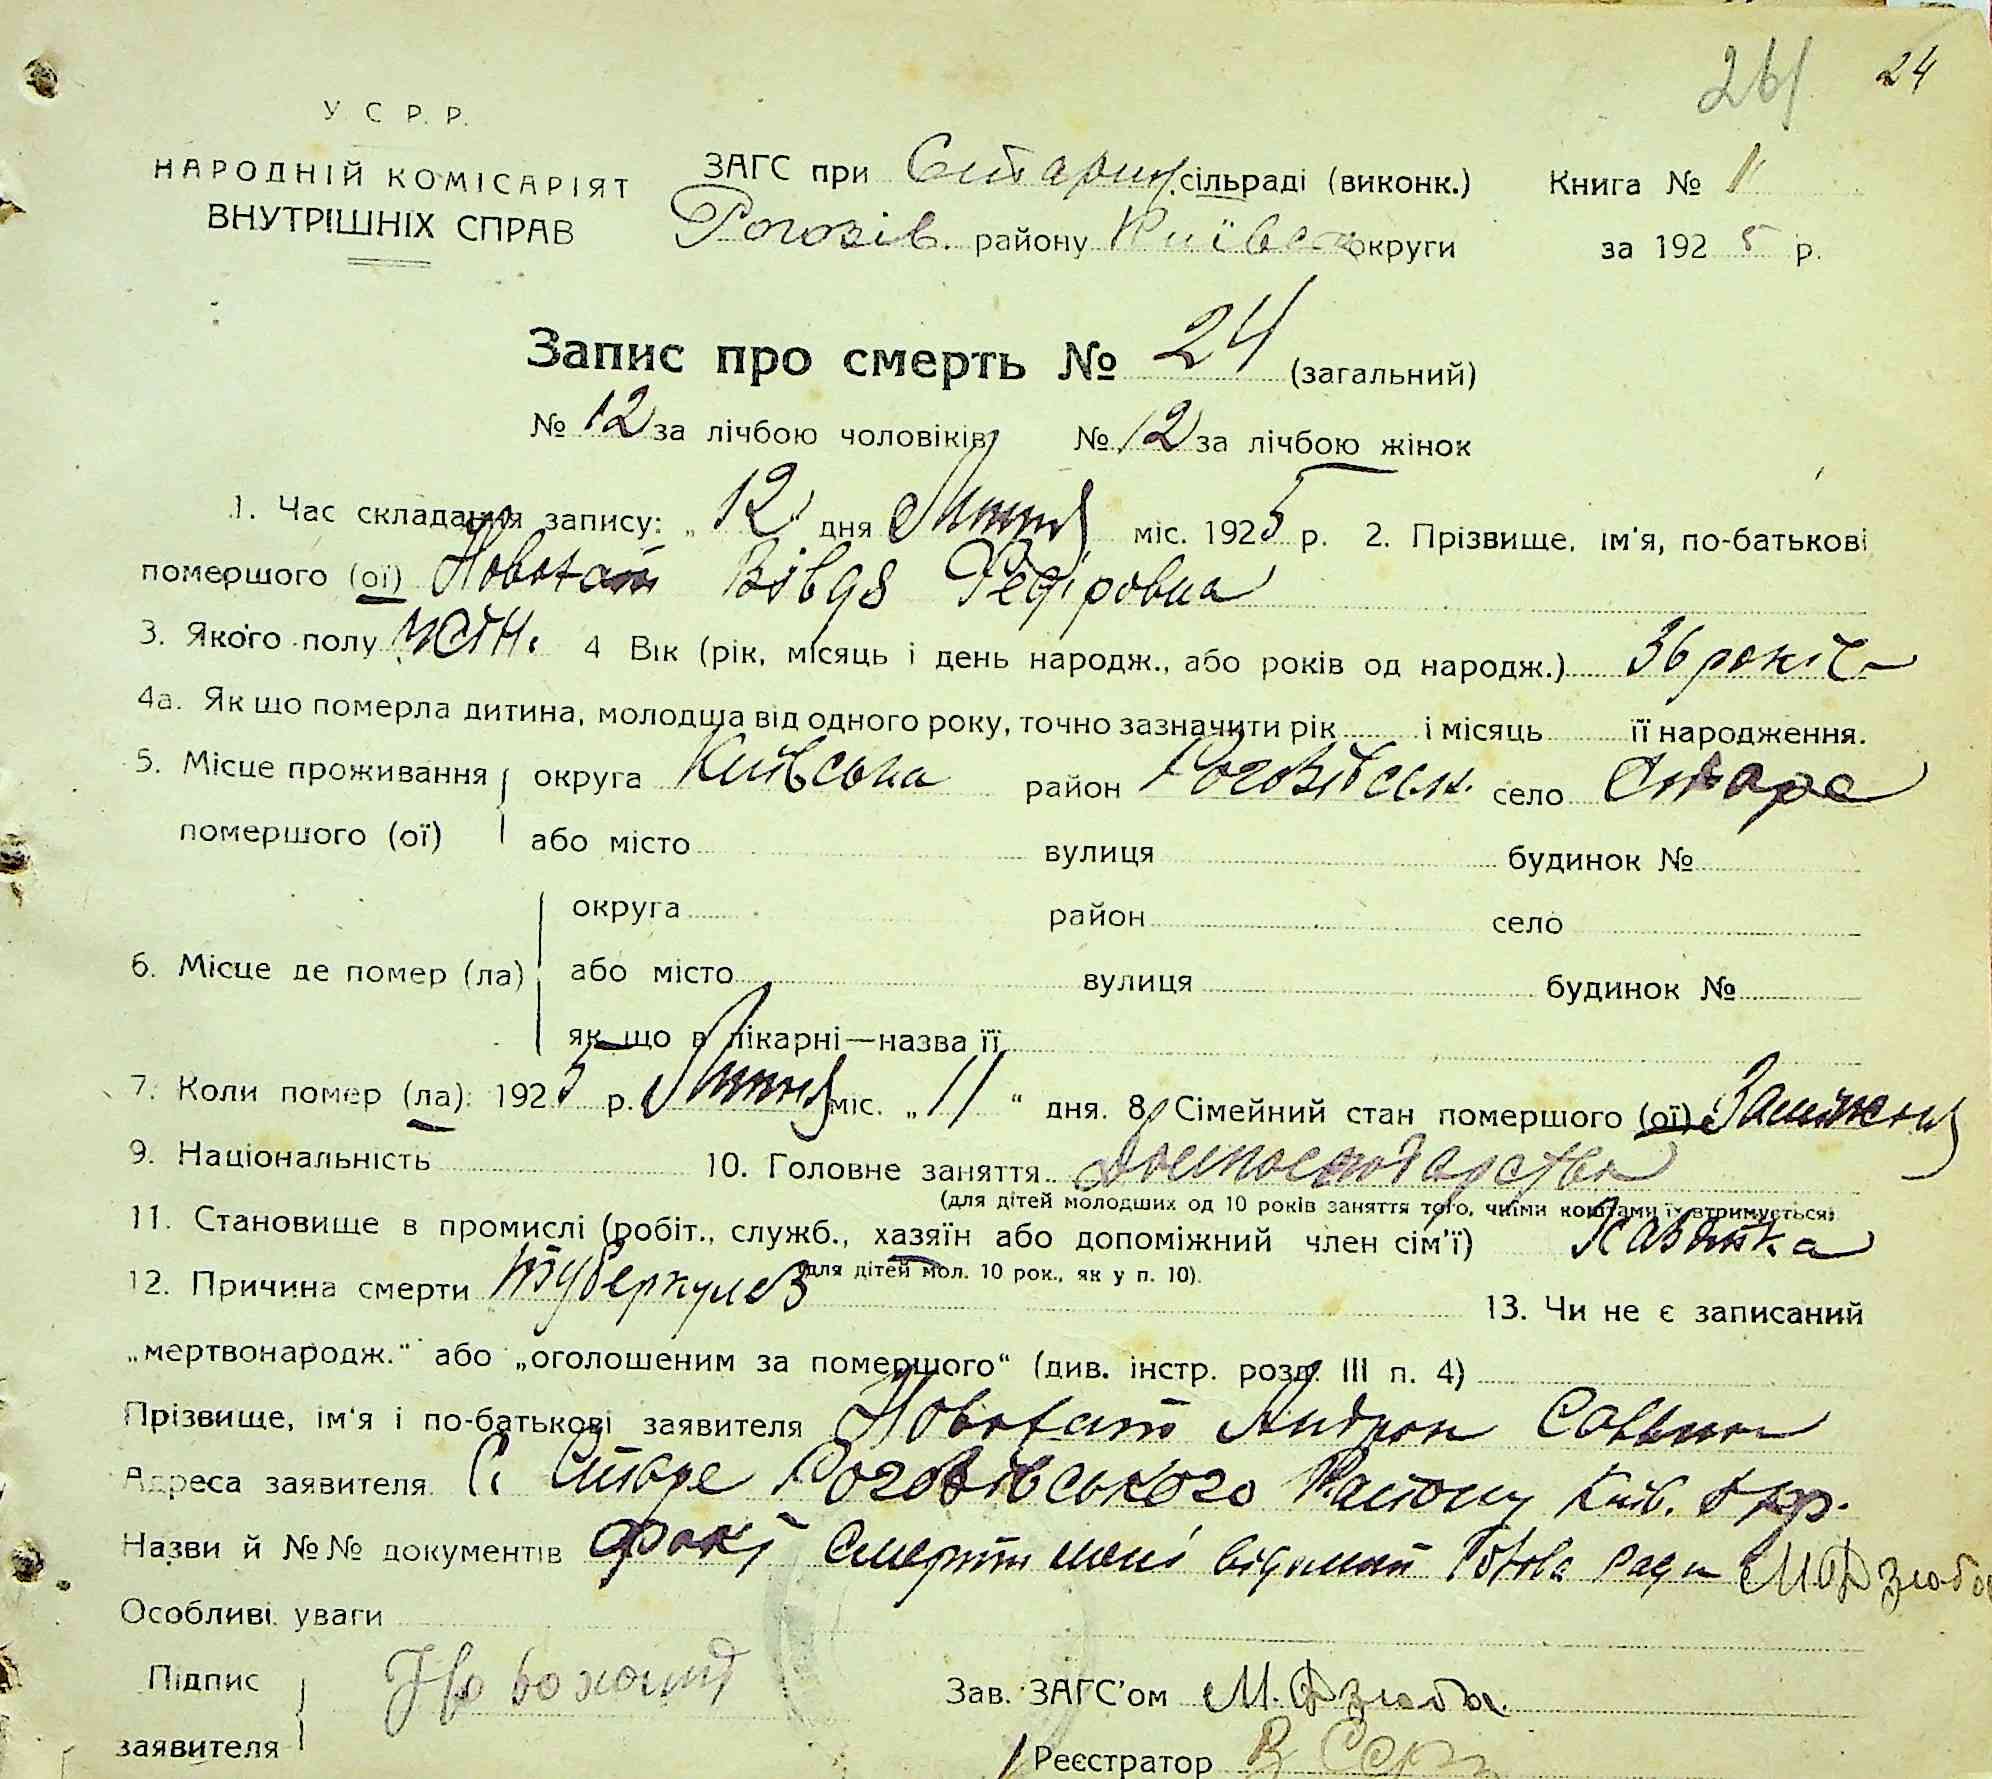 261 24
У. С. Р. Р.
НАРОДНІЙ КОМІСАРІЯТ
ВНУТРІШНІХ СПРАВ
ЗАГС при Старин. сільраді (виконк.) Книга № 1
Рогозів. району Київськ округи за 1925 р.
Запис про смерть № 24 (загальний)
№ 12 за лічбою чоловіків № 12 за лічбою жінок
1. Час складання запису: „12" дня Липня міс. 1925 р. 2. Прізвище, ім'я, по-батькові
помершого (ої) Новохат Вівдя Федіровна
3. Якого полу жін. 4 Вік (рік, місяць і день народж., або років од народж.) 36 років
4а. Як що померла дитина, молодша від одного року, точно зазначити рік і місяць її народження.
5. Місце проживання округа Київська район Рогозівськ. село Старе
помершого (ої) або місто вулиця будинок №
округа район село
6. Місце де помер (ла) або місто вулиця будинок №
як що в лікарні—назва її
7. Коли помер (ла): 1925 р. Липня міс. „11“ дня. 8. Сімейний стан помершого (ої) Заміжня
9. Національність 10. Головне заняття
(для дітей молодших од 10 років заняття того, чиїми коштами їх втримується)
11. Становище в промислі (робіт., служб., хазяїн або допоміжний член сім'ї) Хазяйка
(для дітей мол. 10 рок., як у п. 10).
12. Причина смерти туберкульоз 13. Чи не є записаний
„мертвонародж.“ або „оголошеним за помершого“ (див. інстр. розд. III п. 4)
Прізвище, ім'я і по-батькові заявителя Новохат Андрон
Адреса заявителя С. Старе Рогозівського Району Київ. Окр.
Назви й №№ документів факт смерти мені відомий Голова ради М. Дзюба
Особливі уваги
Підпис
заявителя Новохат
Зав. ЗАГС'ом М. Дзюба.
Реєстратор В